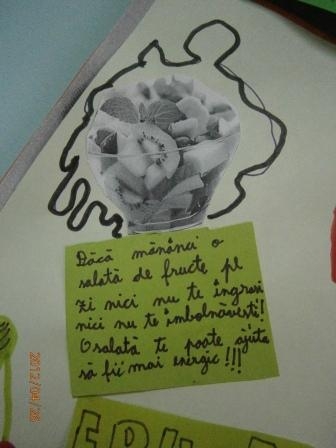 Dăcă mănânci o
salată de fructe pe
zi nici nu te îngrași
nici nu te îmbolnăvești!
O salată te poate ajuta
să fii mai energic!!!
2012/04/26